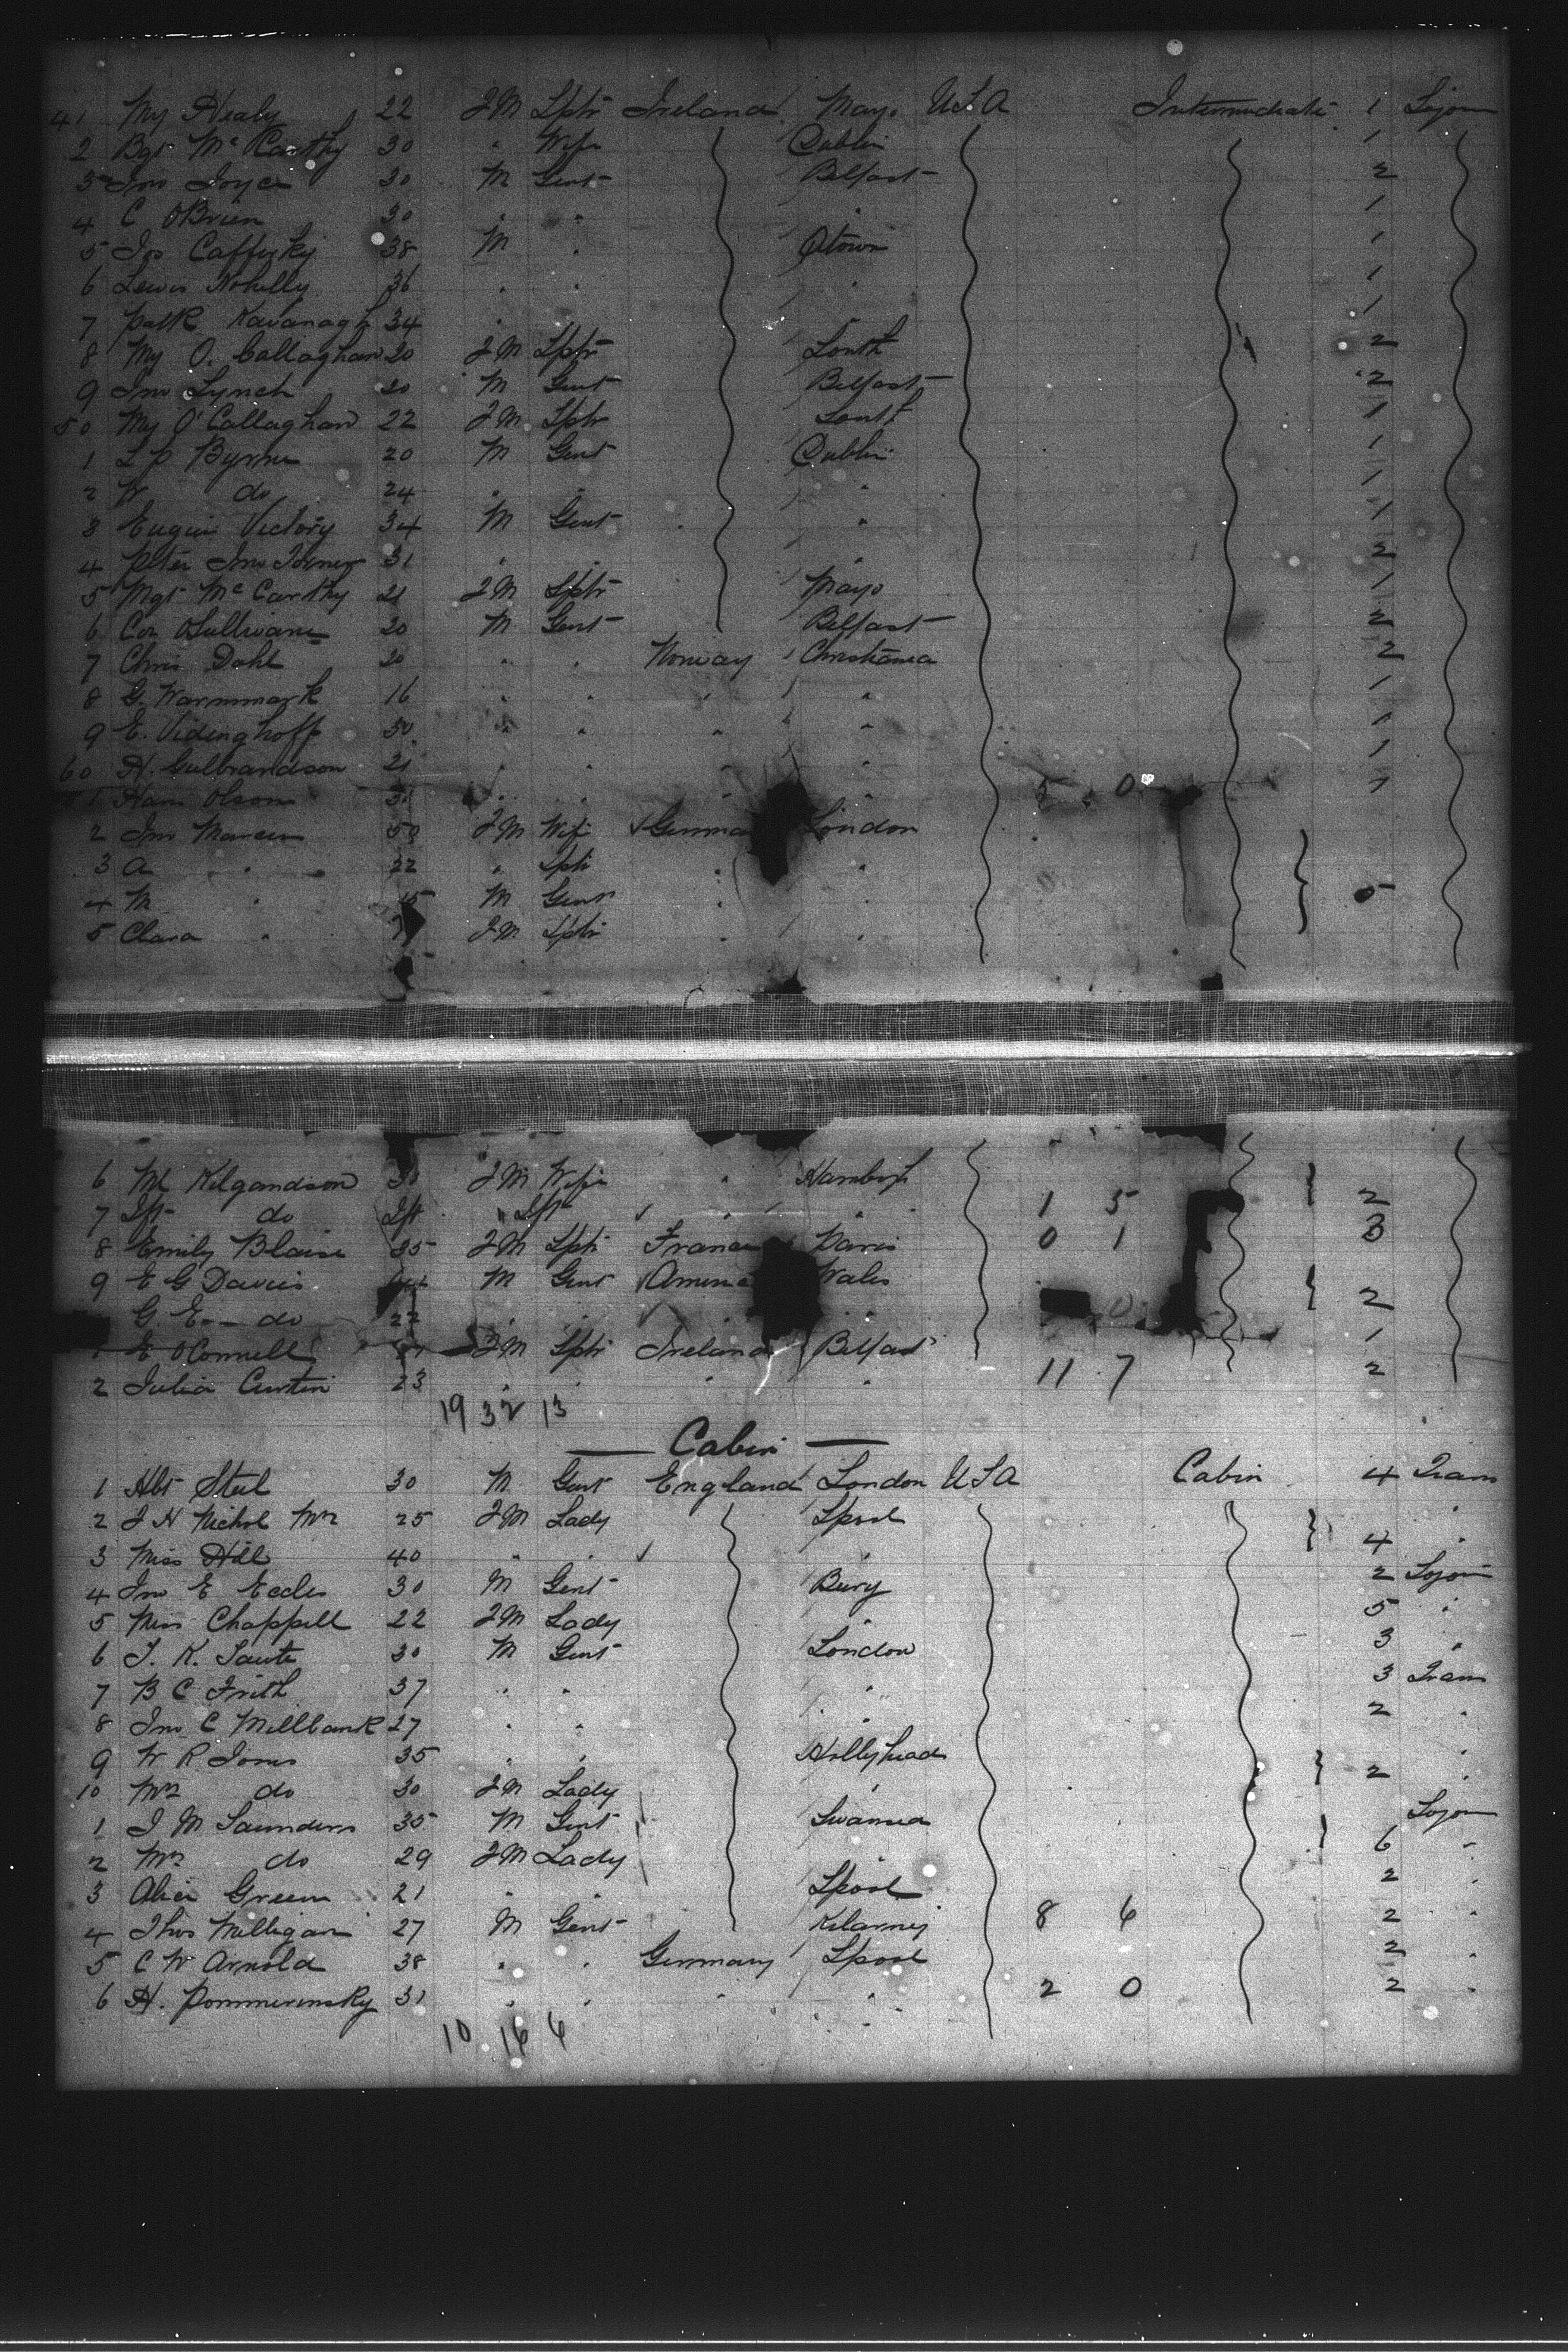 41 My Healy 22 FM Sptr Ireland Mayo USA Intermediate 1 Sojorn
2 Bgt McCarthy 30 " Wife Dublin 1
3 Jno Joyce 30 M Gent Belfast 2
4 C OBrien 30 " " " 1
5 Jos Cafferky 38 M " Qtown 1
6 Lewis 36 " " " 1
7 Patk Kavanagh 34 " 1
8 My O. Callaghan 20 FM Sptr Louth 2
9 Jno Lynch 20 M Gent Belfast 2
50 My O'Callaghan 22 FM Sptr Louth 1
1 L P Byrne 20 M Gent Dublin 1
2 W do 24 " " " 1
3 Eugene Victory 34 M Gent " 1
4 Peter Jno 31 " " " 2
5 Mgt McCarthy 21 FM Sptr Mayo 1
6 Cor OSullivan 20 M Gent Belfast 2
7 Chris Dahl 20 " " Norway Christiania 2
8 G. Warmmark 16 " " " " 1
9 E. Vidinghoff 30 " " " " 1
60 H. Gulbrandson 21 " " " " 1
1 Hans Olson " " " " 5 0 1
2 Jno 50 FM Wife German London
3 A " 22 " Sptr " "
4 M " 15 M Gent " " 5
5 Clara " FM Sptr " "
6 M Kilgandson 30 FM Wife " Hamburg
7 Ift do Ift " Ift " " 1 5 2
8 Emily Blaise 35 FM Sptr France Paris 0 1 3
9 E G Davies M Gent America Wales
G. E do 22 " " " 0 2
1 E OConnell FM Sptr Ireland Belfast 1
2 Julia Curtin 23 " " " " 11 7 2
19 32 13
Cabin
1 Hbt Steel 30 M Gent England London USA Cabin 4 Trans
2 J H Nichol Mrs 25 FM Lady Lpool "
3 Miss Hill 40 " " " 4 "
4 Jno E Eccles 30 M Gent Bury 2 Sojorn
5 Miss Chappell 22 FM Lady " 5 "
6 T. K. 30 M Gent London 3 "
7 B C Frith 37 " " " 3 Trans
8 Jno C Millbank 27 " " " 2 "
9 W R Jones 35 " " Hollyhead "
10 Mrs do 30 FM Lady " 2 "
1 J M Saunders 35 M Gent Swansea Sojorn
2 Mrs do 29 FM Lady 6 "
3 Alice Green 21 " " Lpool 2 "
4 Thos Milligan 27 M Gent Kilarney 8 6 2 "
5 C W Arnold 38 " " Germany Lpool 2 "
6 H. Pommerinsky 31 " " " " 2 0 2 "
10 16 6